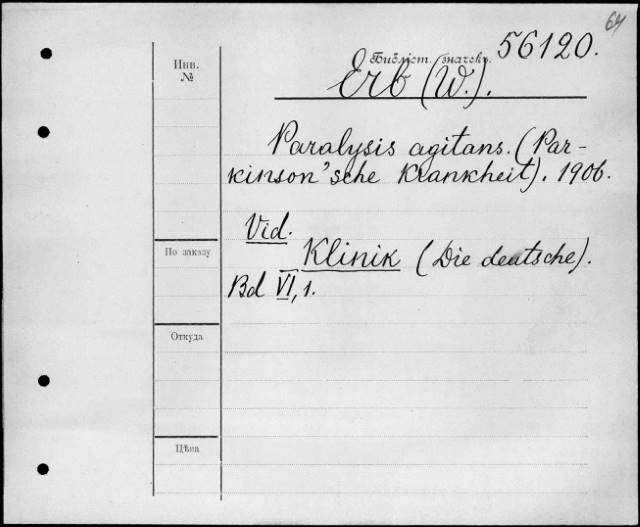 64
56120.
Инв.
№
Библіот. значекъ.
Erb (W.).
Paralysis agitans. (Par-
kinson'sche Krankheit). 1906.
Vid.
Klinik (Die deutsche).
Bd VI, 1.
По заказу
Откуда
Цѣна